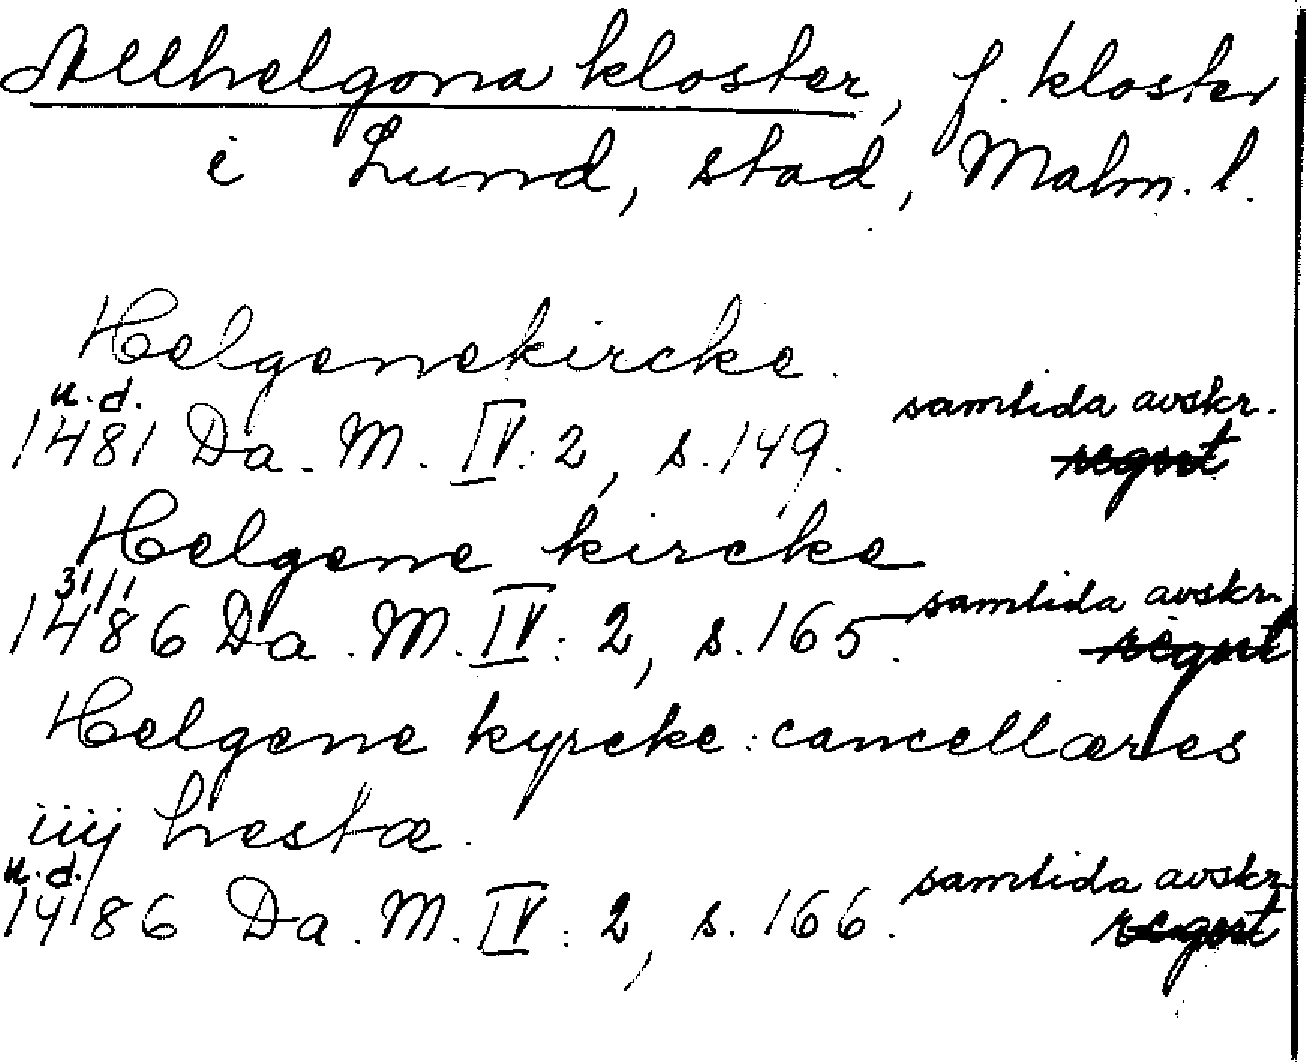 Allhelgona kloster, f. kloster
i Lund, stad, Malm. l.
Helgenekircke.
u. d.
samtida avskr.
1481 Da. M. IV: 2, s. 149. regest
Helgene kircke
31/1
samtida avskr.
1486 Da. M. IV: 2, s. 165. regest
Helgene kyrcke: cancellæres
iiij hestæ.
u. d.
samtida avskr.
1486 Da. M. IV: 2, s. 166. regest